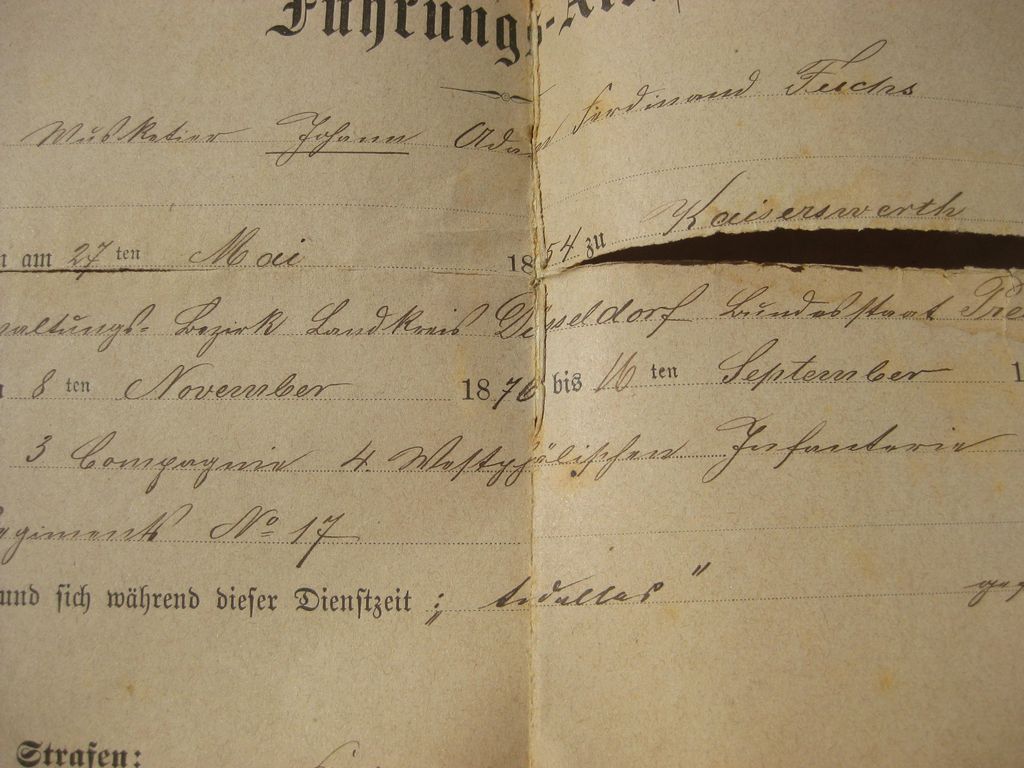 Führungs-
Musketier Johann Adam Ferdinand Fuchs
n am 27 ten Mai 1854 zu Kaiserswerth
waltungs-Bezirk Landkreis Düsseldorf Bundesstaat Pre
8 ten November 1876 bis 16 ten September 1
3 Compagnie 4. Westphälischen Infanterie
egiments No 17
und sich während dieser Dienstzeit : "
Strafen: